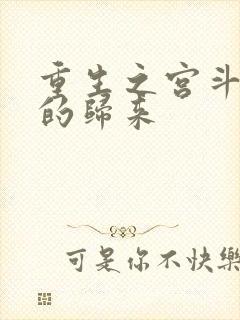 重生之宫斗
的歸来
可是你不快樂